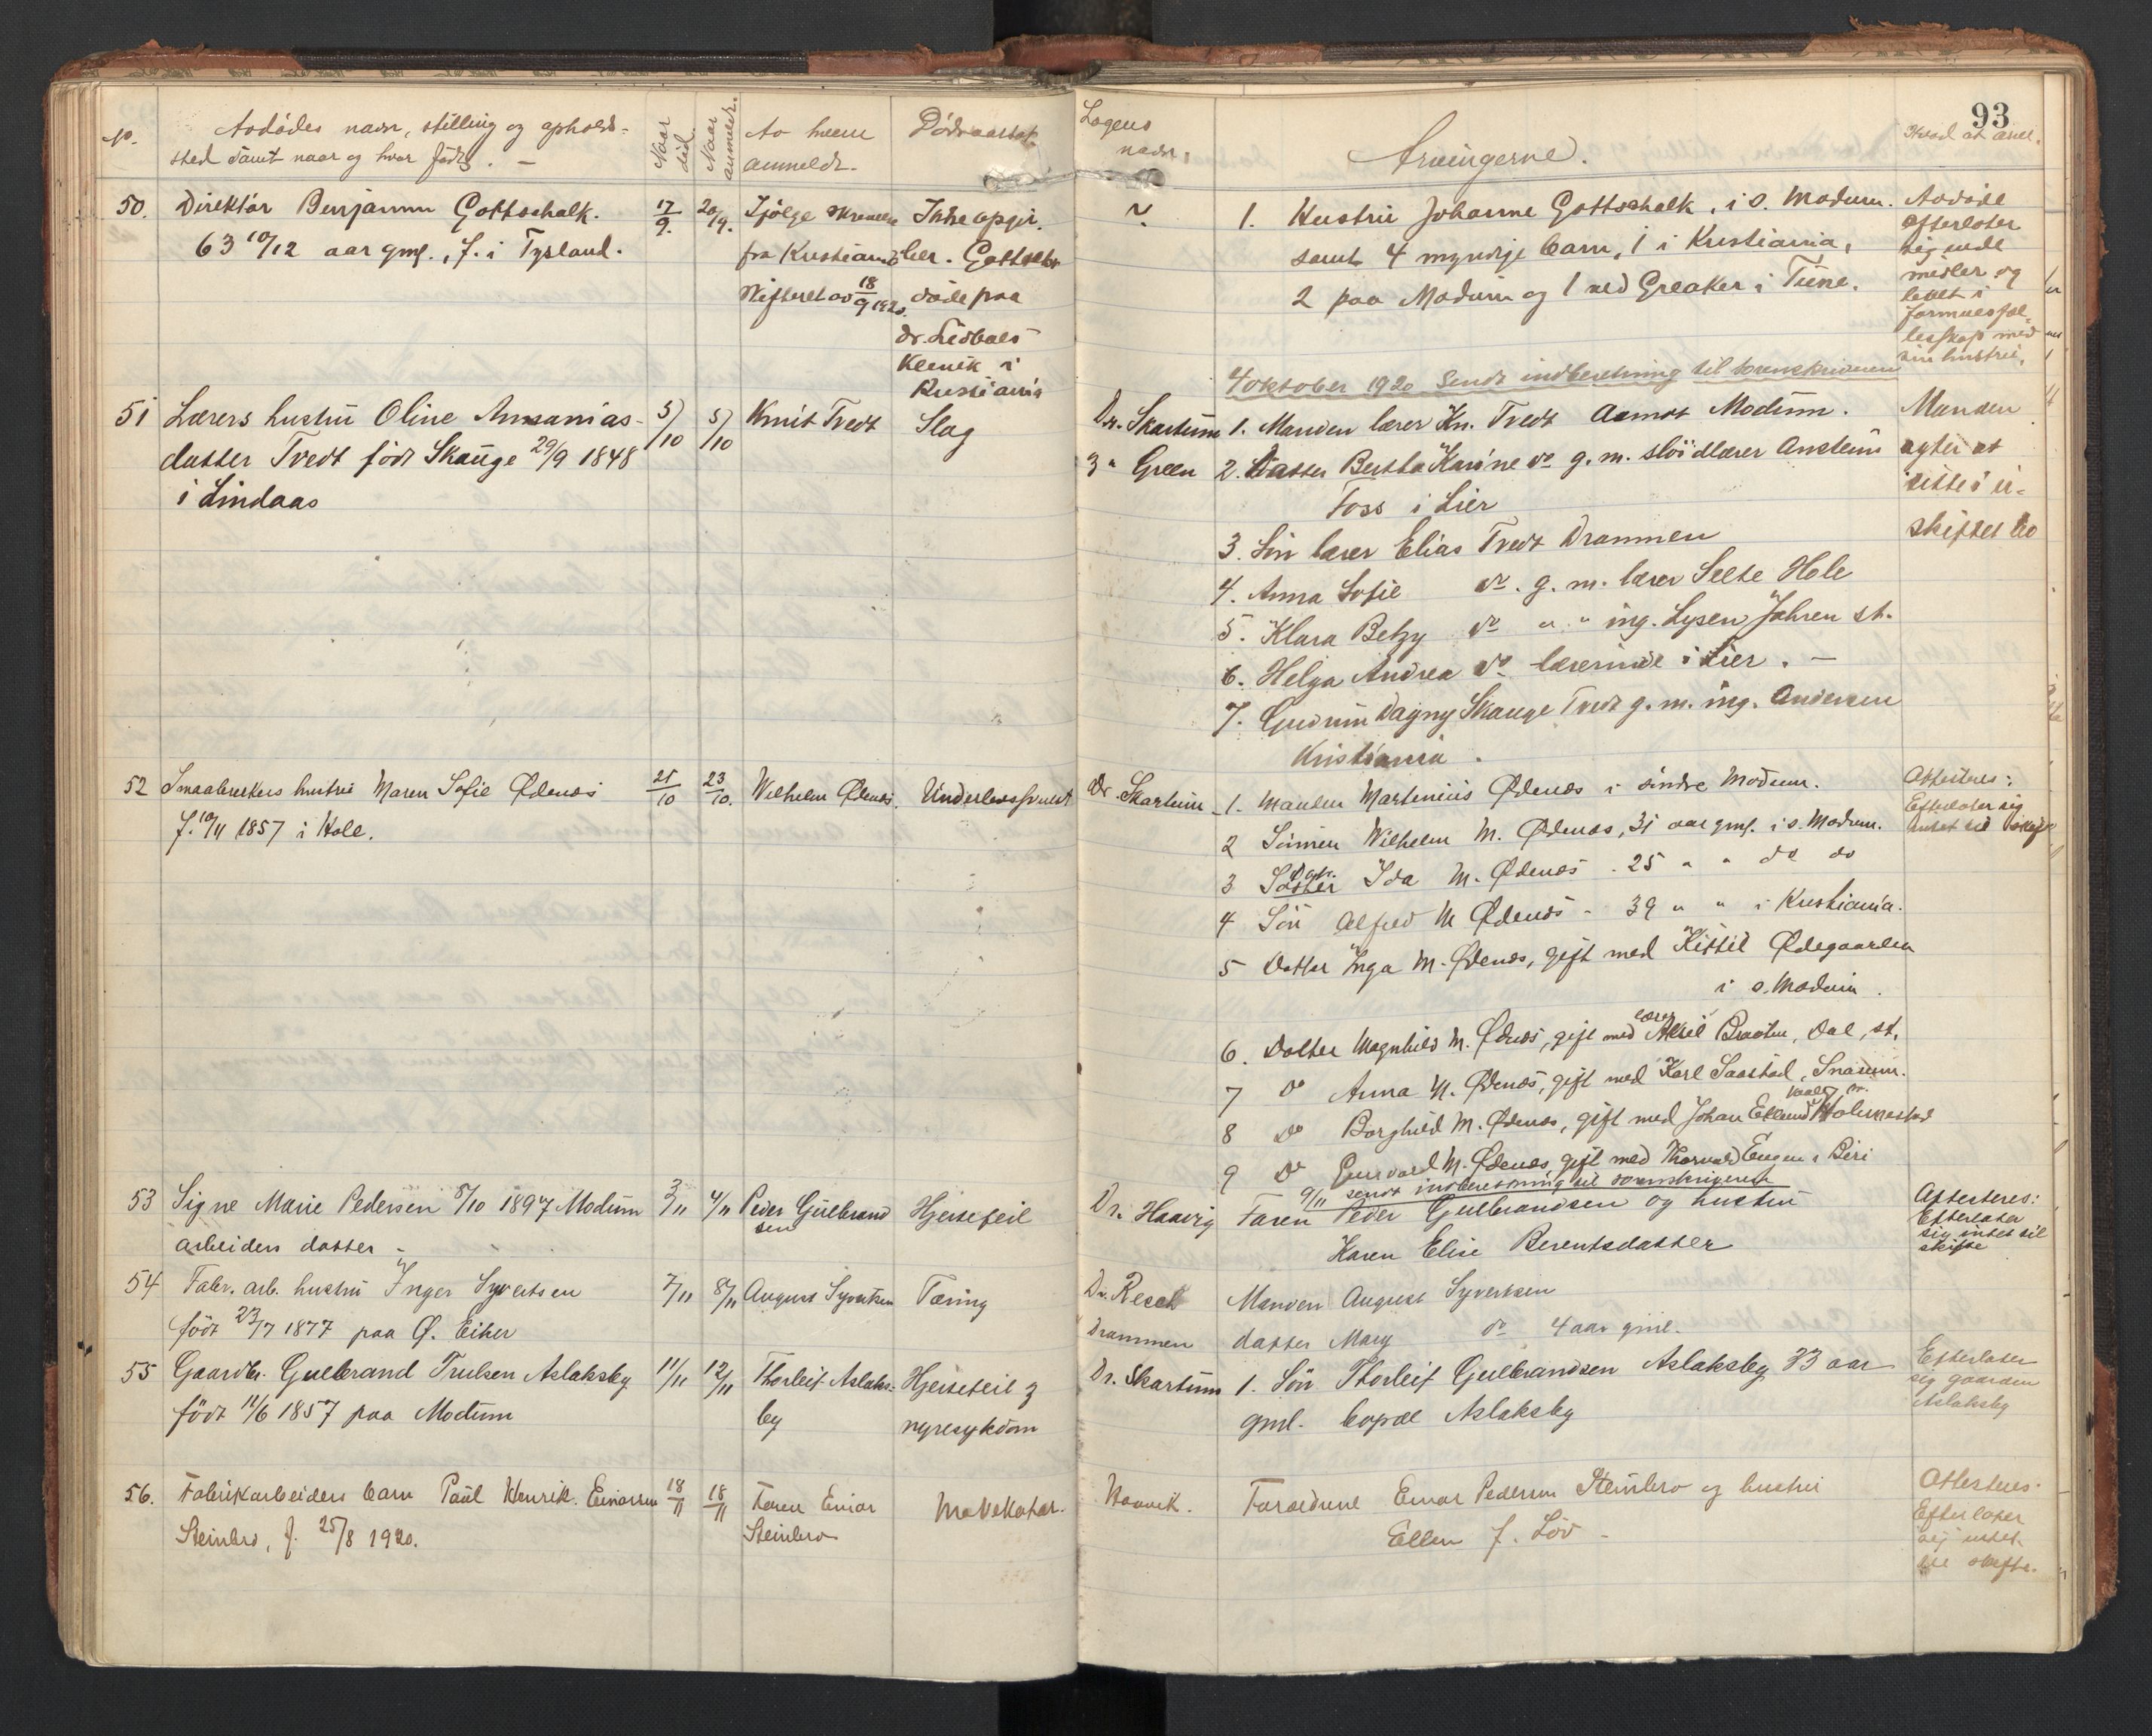 93
No.
Avdødes navn, stilling og opholds-
sted samt naar og hvor født. -
Naar død.
Naar anmeldt.
Av hvem
anmeldt.
Dødsaarsak.
Lægens
navn.
Arvingerne.
50. Direktør Benjamin Gottschalk.
63 10/12 aar gml., f. i Tyskland.
17/9. 20/9.
Ifølge skrivelse
fra Kristiania
skifteret av 18/9 1920.
Ikke opgit.
her. Gottschalk
døde paa
dr.
Klinik i
Kristiania
~
1. Hustru Johanne Gottschalk, i s. Modum.
samt 4 myndige barn, 1 i Kristiania,
2 paa Modum og 1 ved Greaker i Tune.
Avdøde
efterlater
sig
midler og
levet i
formuesfæl-
lesskap med
sin hustru.
4 oktober 1920 Sendt indberetning til sorenskriveren
51 Lærers hustru Oline Ananias-
datter Tvedt født Skauge 29/9 1848
i Lindaas
5/10 5/10
Knut Tvedt
Slag
Dr. Skartum
3 " Green
1. Manden lærer Kn. Tvedt Aamot Modum.
2. Datter Bertha Karine do g. m. sløidlærer Anstein
Foss i Lier
3. Søn lærer Elias Tvedt Drammen
4. Anna Sofie do. g. m. lærer Selte Hole
5. Klara Betzy do " " ing. Lysen Jahren st.
6. Helga Andrea do lærerinde i Lier. -
7. Gudrun Dagny Skauge Tvedt g. m. ing. Andersen
Kristiania.
Manden
agter at
sitte i u-
skiftet bo
52 Smaabrukers hustru Maren Sofie Ødenæs
f. 10/4 1857 i Holl.
21/10 23/10.
Wilhelm Ødenæs.
Underlivssvulst
Dr. Skartum
1. Manden Martinius Ødenæs i søndre Modum.
2 Sønnen Wilhelm M. Ødenæs, 31 aar gml. i s. Modum.
3 Datr. Ida M. Ødenæs . 25 " " do do
4 Søn Alfred M Ødenæs - 39 " " i Kristiania.
5 Datter Inga M. Ødenæs, gift med Kittil Ødegaarden
i s. Modum.
6. Datter Magnhild M. Ødenæs, gift med lærer Aksel Braaten, Dal, st.
7 Do Anna M. Ødenæs, gift med Karl Saastad, Snarum.
8 Do Borghild M. Ødenæs, gift med Johan Holmestrand
9 Do M. Ødenæs, gift med Thorvald Engen i Biri
Attesteres:
Efterlater sig
intet til skifte
9/11 sendt indberetning til sorenskriveren
53 Signe Marie Pedersen 5/10 1897 Modum
arbeiders datter -
3/11 4/11
Peder Gulbrand
sen
Hjertefeil
Dr. Haavig
Faren Peder Gulbrandsen og hustru
Karen Elise Berentsdatter
Attesteres:
Efterlater
sig intet til
skifte
54 Fabr. arb. hustru Inger Syvertsen
født 23/7 1877 paa Ø. Eiker
7/11 8/11
August Syvertsen
Tæring
Dr. Resch
Drammen
Manden August Syvertsen
datter Mary do 4 aar gml.
55 Gaardbr. Gulbrand Trulsen Aslaksby
født 11/6 1857 paa Modum
11/11 12/11
Thorleif Aslaks-
by
Hjertefeil &
nyresykdom
Dr. Skartum
1. Søn Thorleif Gulbrandsen Aslaksby 33 aar
gml. bopæl Aslaksby
Efterlater
sig gaarden
Aslaksby
56. Fabrikarbeiders barn Paul Henrik. Einarsen
Steinbro, f. 25/8 1920.
18/11 18/11
Faren Einar
Steinbro
Mavekatar.
Haavik.
Forældrene Einar Pedersen Steinbro og hustru
Ellen f. Løv -
Attesteres.
Efterlater
sig intet
til skifte.